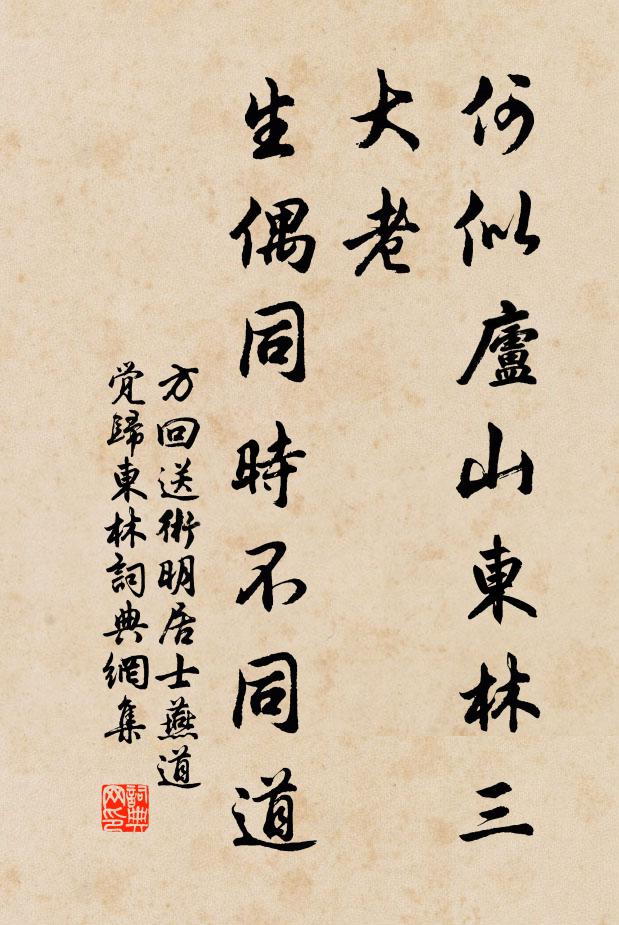 何似廬山東林三
大老
生偶同時不同道
方回送術明居士燕道
覚歸東林詞典網集
詞典
网印